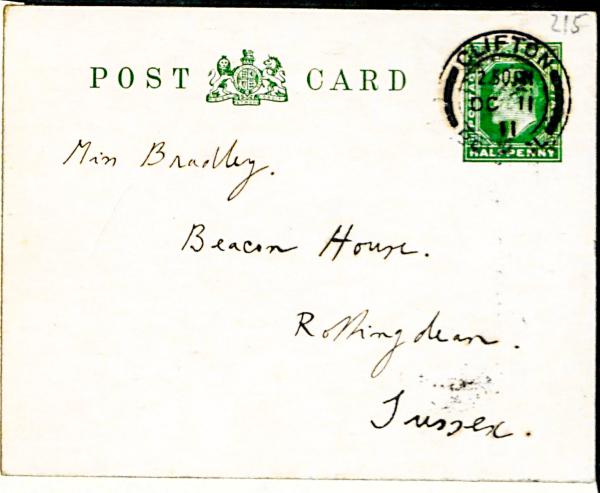 215
POST CARD
CLIFTON
2.30 PM
OC 11
11
HALFPENNY
Miss Bradley.
Beacon House.
Rottingdean.
Sussex.